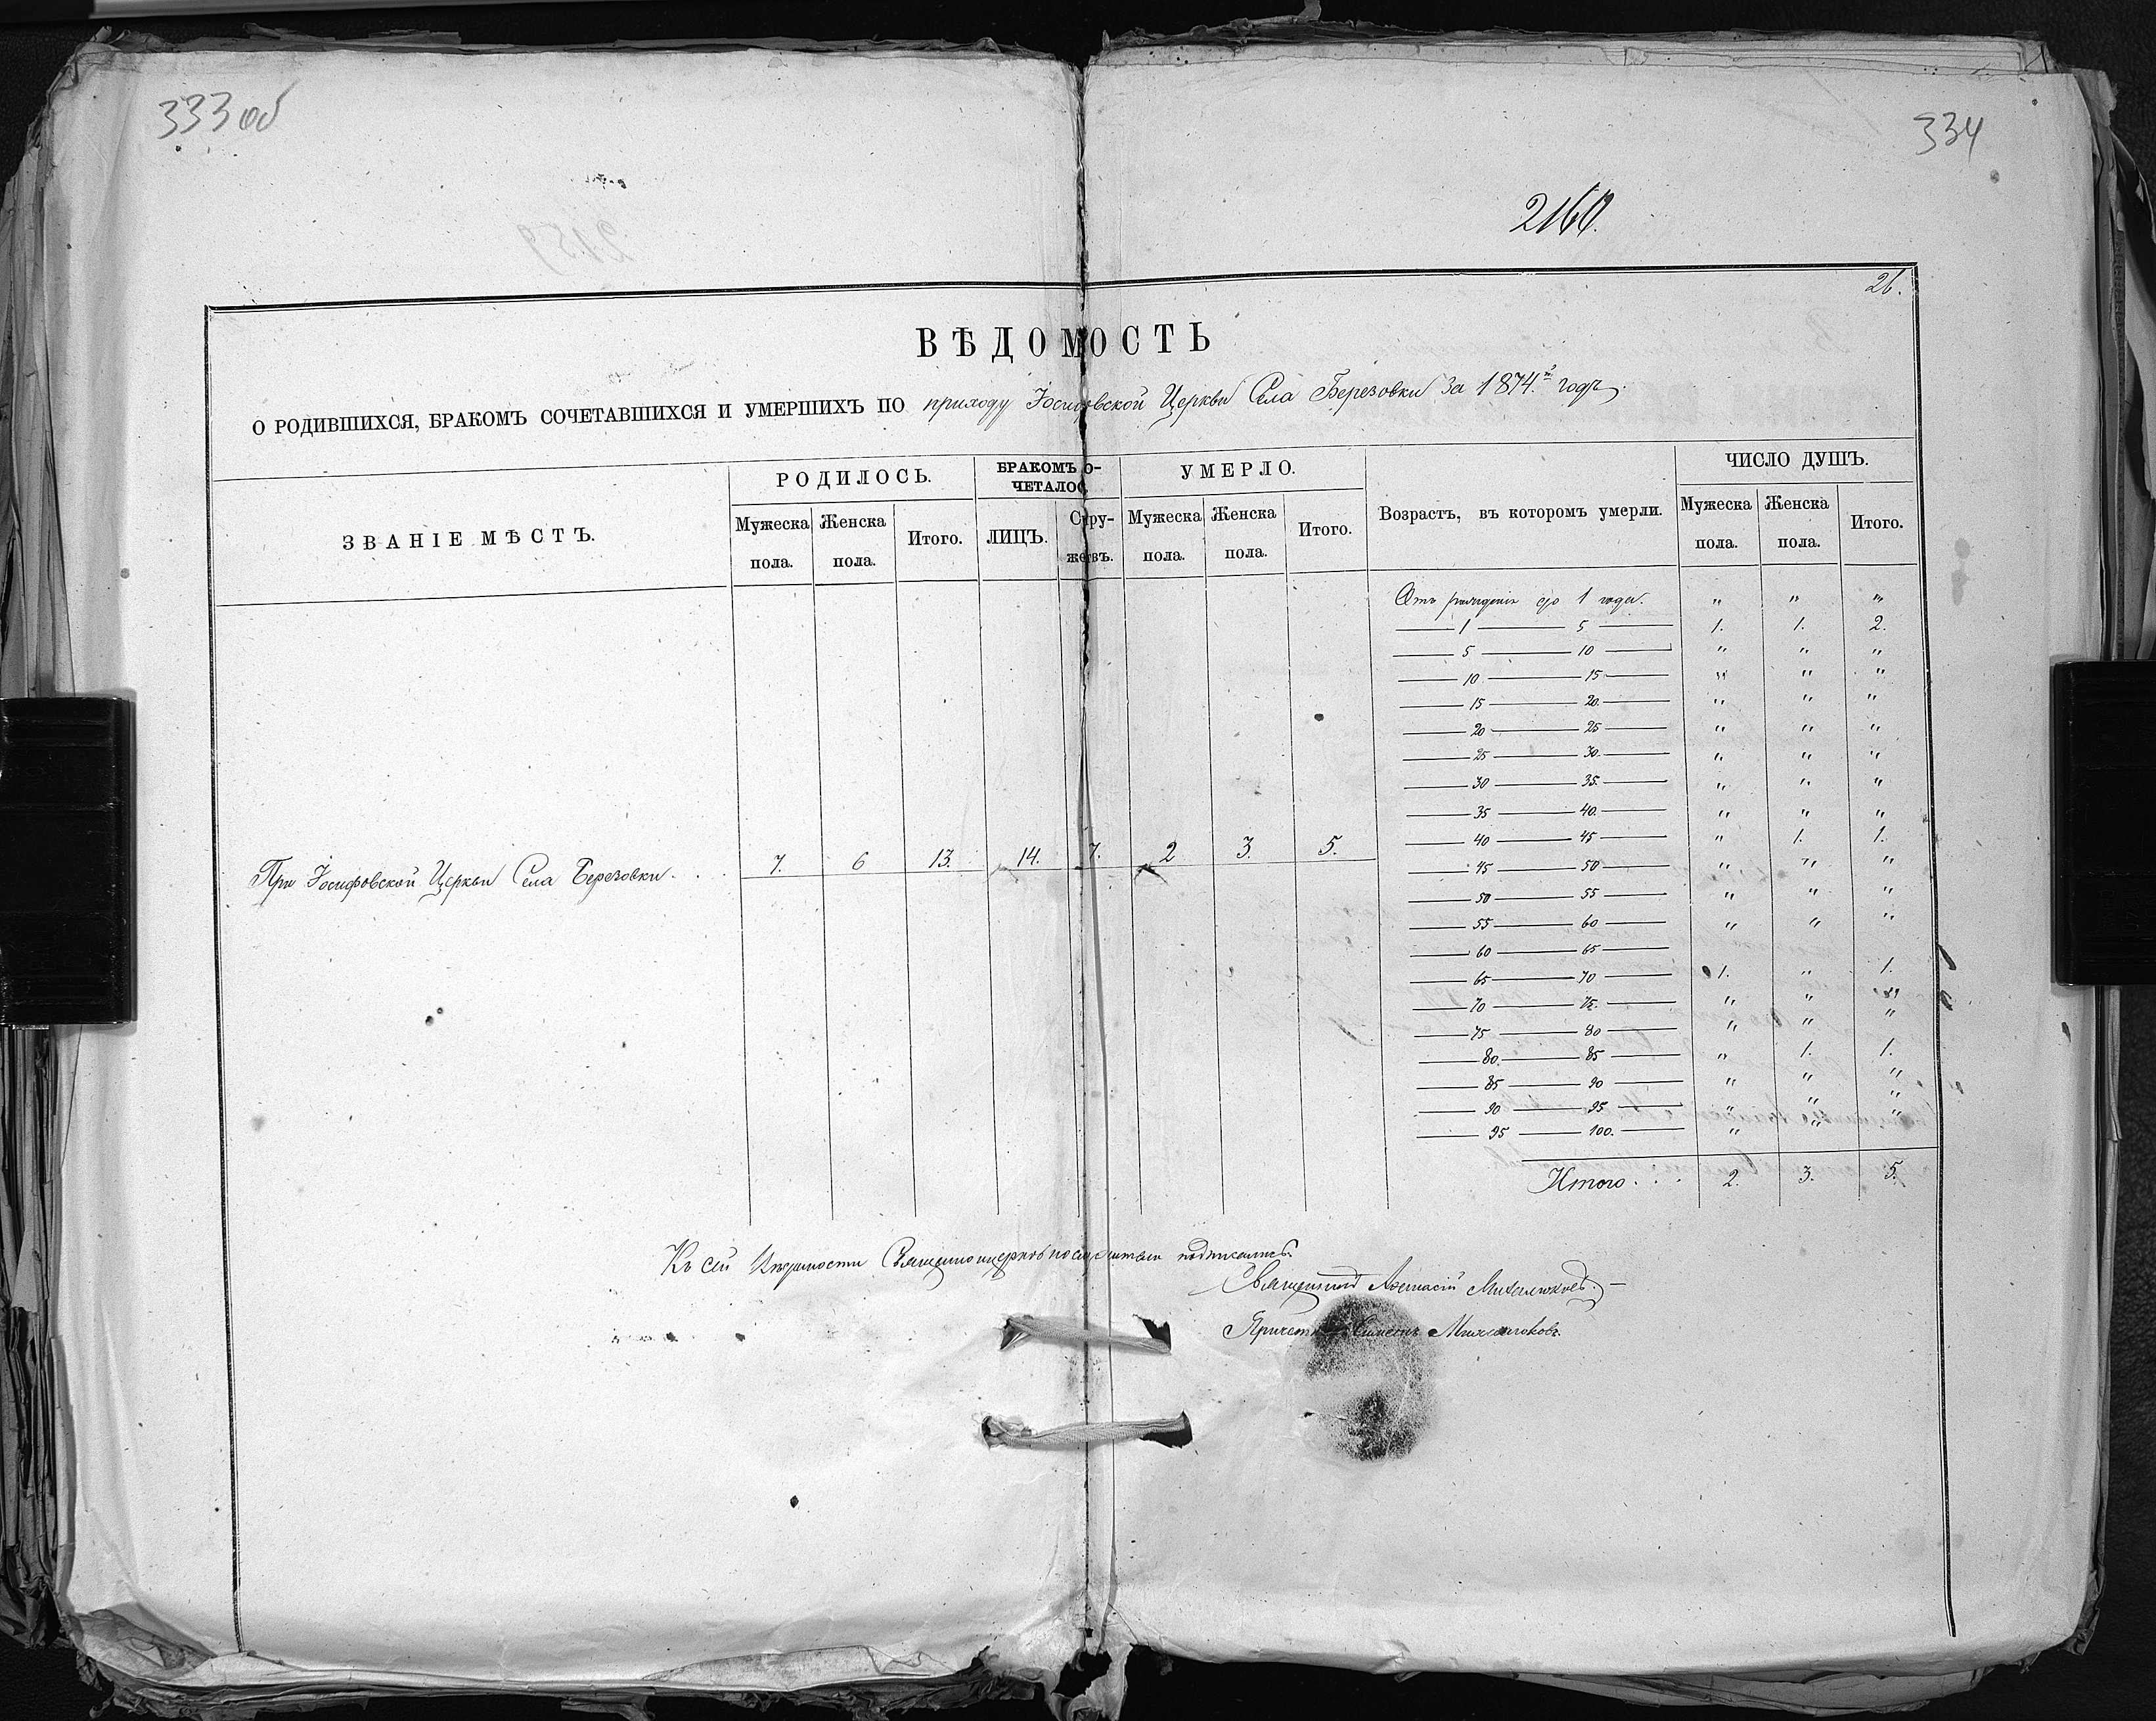 333 об
334
2160.
26.
ВѢДОМОСТЬ
О РОДИВШИХСЯ, БРАКОМЪ СОЧЕТАВШИХСЯ И УМЕРШИХЪ ПО приходу Іосифовской Церкви Села Березовки за 1874.й годъ.
ЗВАНІЕ МѢСТЪ.
РОДИЛОСЬ.
Мужеска пола.
Женска пола.
Итого.
БРАКОМЪ СО-
ЧЕТАЛОСЬ
ЛИЦЪ.
Супру-
жествъ.
УМЕРЛО.
Мужеска пола.
Женска пола.
Итого.
Возрастъ, въ которомъ умерли.
ЧИСЛО ДУШЪ.
Мужеска пола.
Женска пола.
Итого.
При Іосифовской Церкви Села Березовки. . . 7. 6 13. 14. 7. 2 3. 5.
Отъ рожденія до 1 года. " " "
1 — 5 — 1. 1. 2.
5 — 10 — " " "
10 — 15 — " " "
15 — 20. — " " "
20 — 25 — " " "
25 — 30. — " " "
30 — 35. — " " "
35 — 40. — " " "
40 — 45 — " 1. 1.
45 — 50 — " " "
50 — 55 — " " "
55 — 60 — " " "
60 — 65 —
65 — 70 — 1. " 1.
70 — 75. — " " "
75 — 80 — " " "
80. — 85 — " 1. 1.
85 — 90 — " " "
90 — 95 — " " "
95 — 100. — " " "
Итого . . . 2. 3. 5.
Къ сей Вѣдомости Священноцерковнослужители подписались:
Священникъ Михалюковъ.
Причетникъ Симеонъ Михалюковъ.